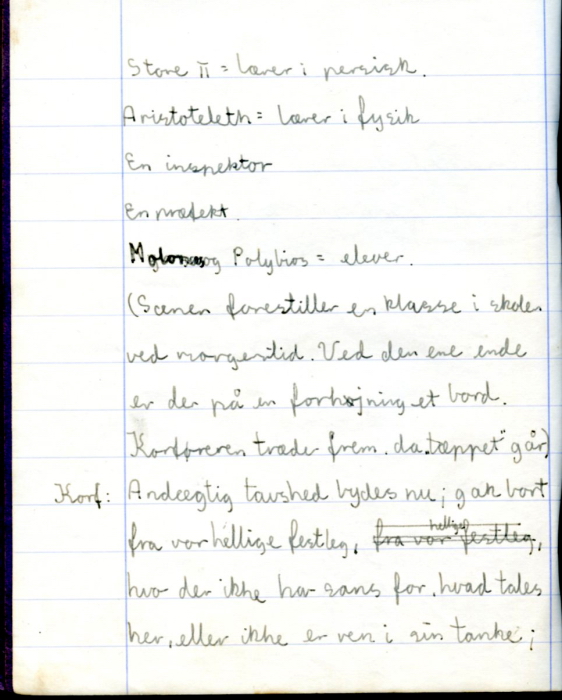 Store π = lærer i persisk.
Aristoteleth = lærer i fysik
En inspektor
En præfekt.
og Polybios = elever.
(Scenen forestiller en klasse i skolen
ved morgenstid. Ved den ene ende
er der på en forhøjning et bord.
Korføreren træder frem, da "tæppet" går)
Korf: Andægtig tavshed bydes nu; gak bort
fra vor hellige festleg, fra vor hellige festleg,
hvo der ikke har sans for, hvad tales
her, eller ikke er ren i sin tanke;